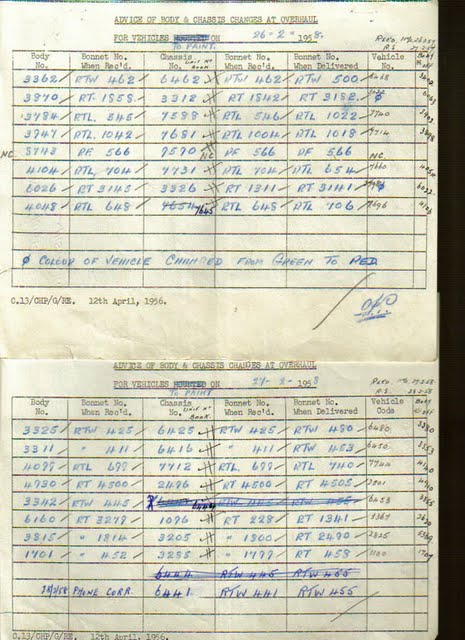 ADVICE OF BODY & CHASSIS CHANGES AT OVERHAUL
FOR VEHICLES MOUNTED ON 26-2- 1958.
TO PAINT.
Body No. Bonnet No. When Rec'd. Chassis No. Unit No Book. Bonnet No. When Rec'd. Bonnet No. When Delivered Vehicle No. Body
3362 RTW 462 6462 RTW 462 RTW 500 6468
3870 RT 1858 3312 RT 1842 RT 3182 ø
3784 RTL 545 7599 RTL 546 RTL 1022 7740
3947 RTL 1042 7681 RTL 1004 RTL 1018 7714
NC. 8743 RF 566 9590 NC RF 566 RF 566 NC.
4104 RTL 704 7731 RTL 704 RTL 654 7660
6026 RT 3145 3326 RT 1311 RT 3141 6022
4048 RTL 648 7654 7645 RTL 648 RTL 706 7696
ø COLOUR OF VEHICLE CHANGED FROM GREEN TO RED
C.13/CHP/G/RE. 12th April, 1956.
ADVICE OF BODY & CHASSIS CHANGES AT OVERHAUL
FOR VEHICLES MOUNTED ON 27-2- 1958
TO PAINT
Body No. Bonnet No. When Rec'd. Chassis No. Unit No Book. Bonnet No. When Rec'd. Bonnet No. When Delivered Vehicle Code Body
3325 RTW 425 6425 RTW 425 RTW 480 6480 3380
3311 " 411 6416 " 411 RTW 453 6450 3353
4099 RTL 699 7712 RTL 699 RTL 740 7744 4140
4930 RT 4500 2496 RT 4500 RT 4505 2801
3342 RTW 445 X 6444 RTW 445 RTW 455 6458 3355
6160 RT 3279 1096 RT 228 RT 1341 3367
3815 " 1814 3205 " 1800 RT 2490
1701 " 452 3285 " 1799 RT 458 1707
6444 RTW 445 RTW 455
28/2/58 PHONE CORR. 6441 RTW 441 RTW 455
C.13/CHP/G/RE. 12th April, 1956.